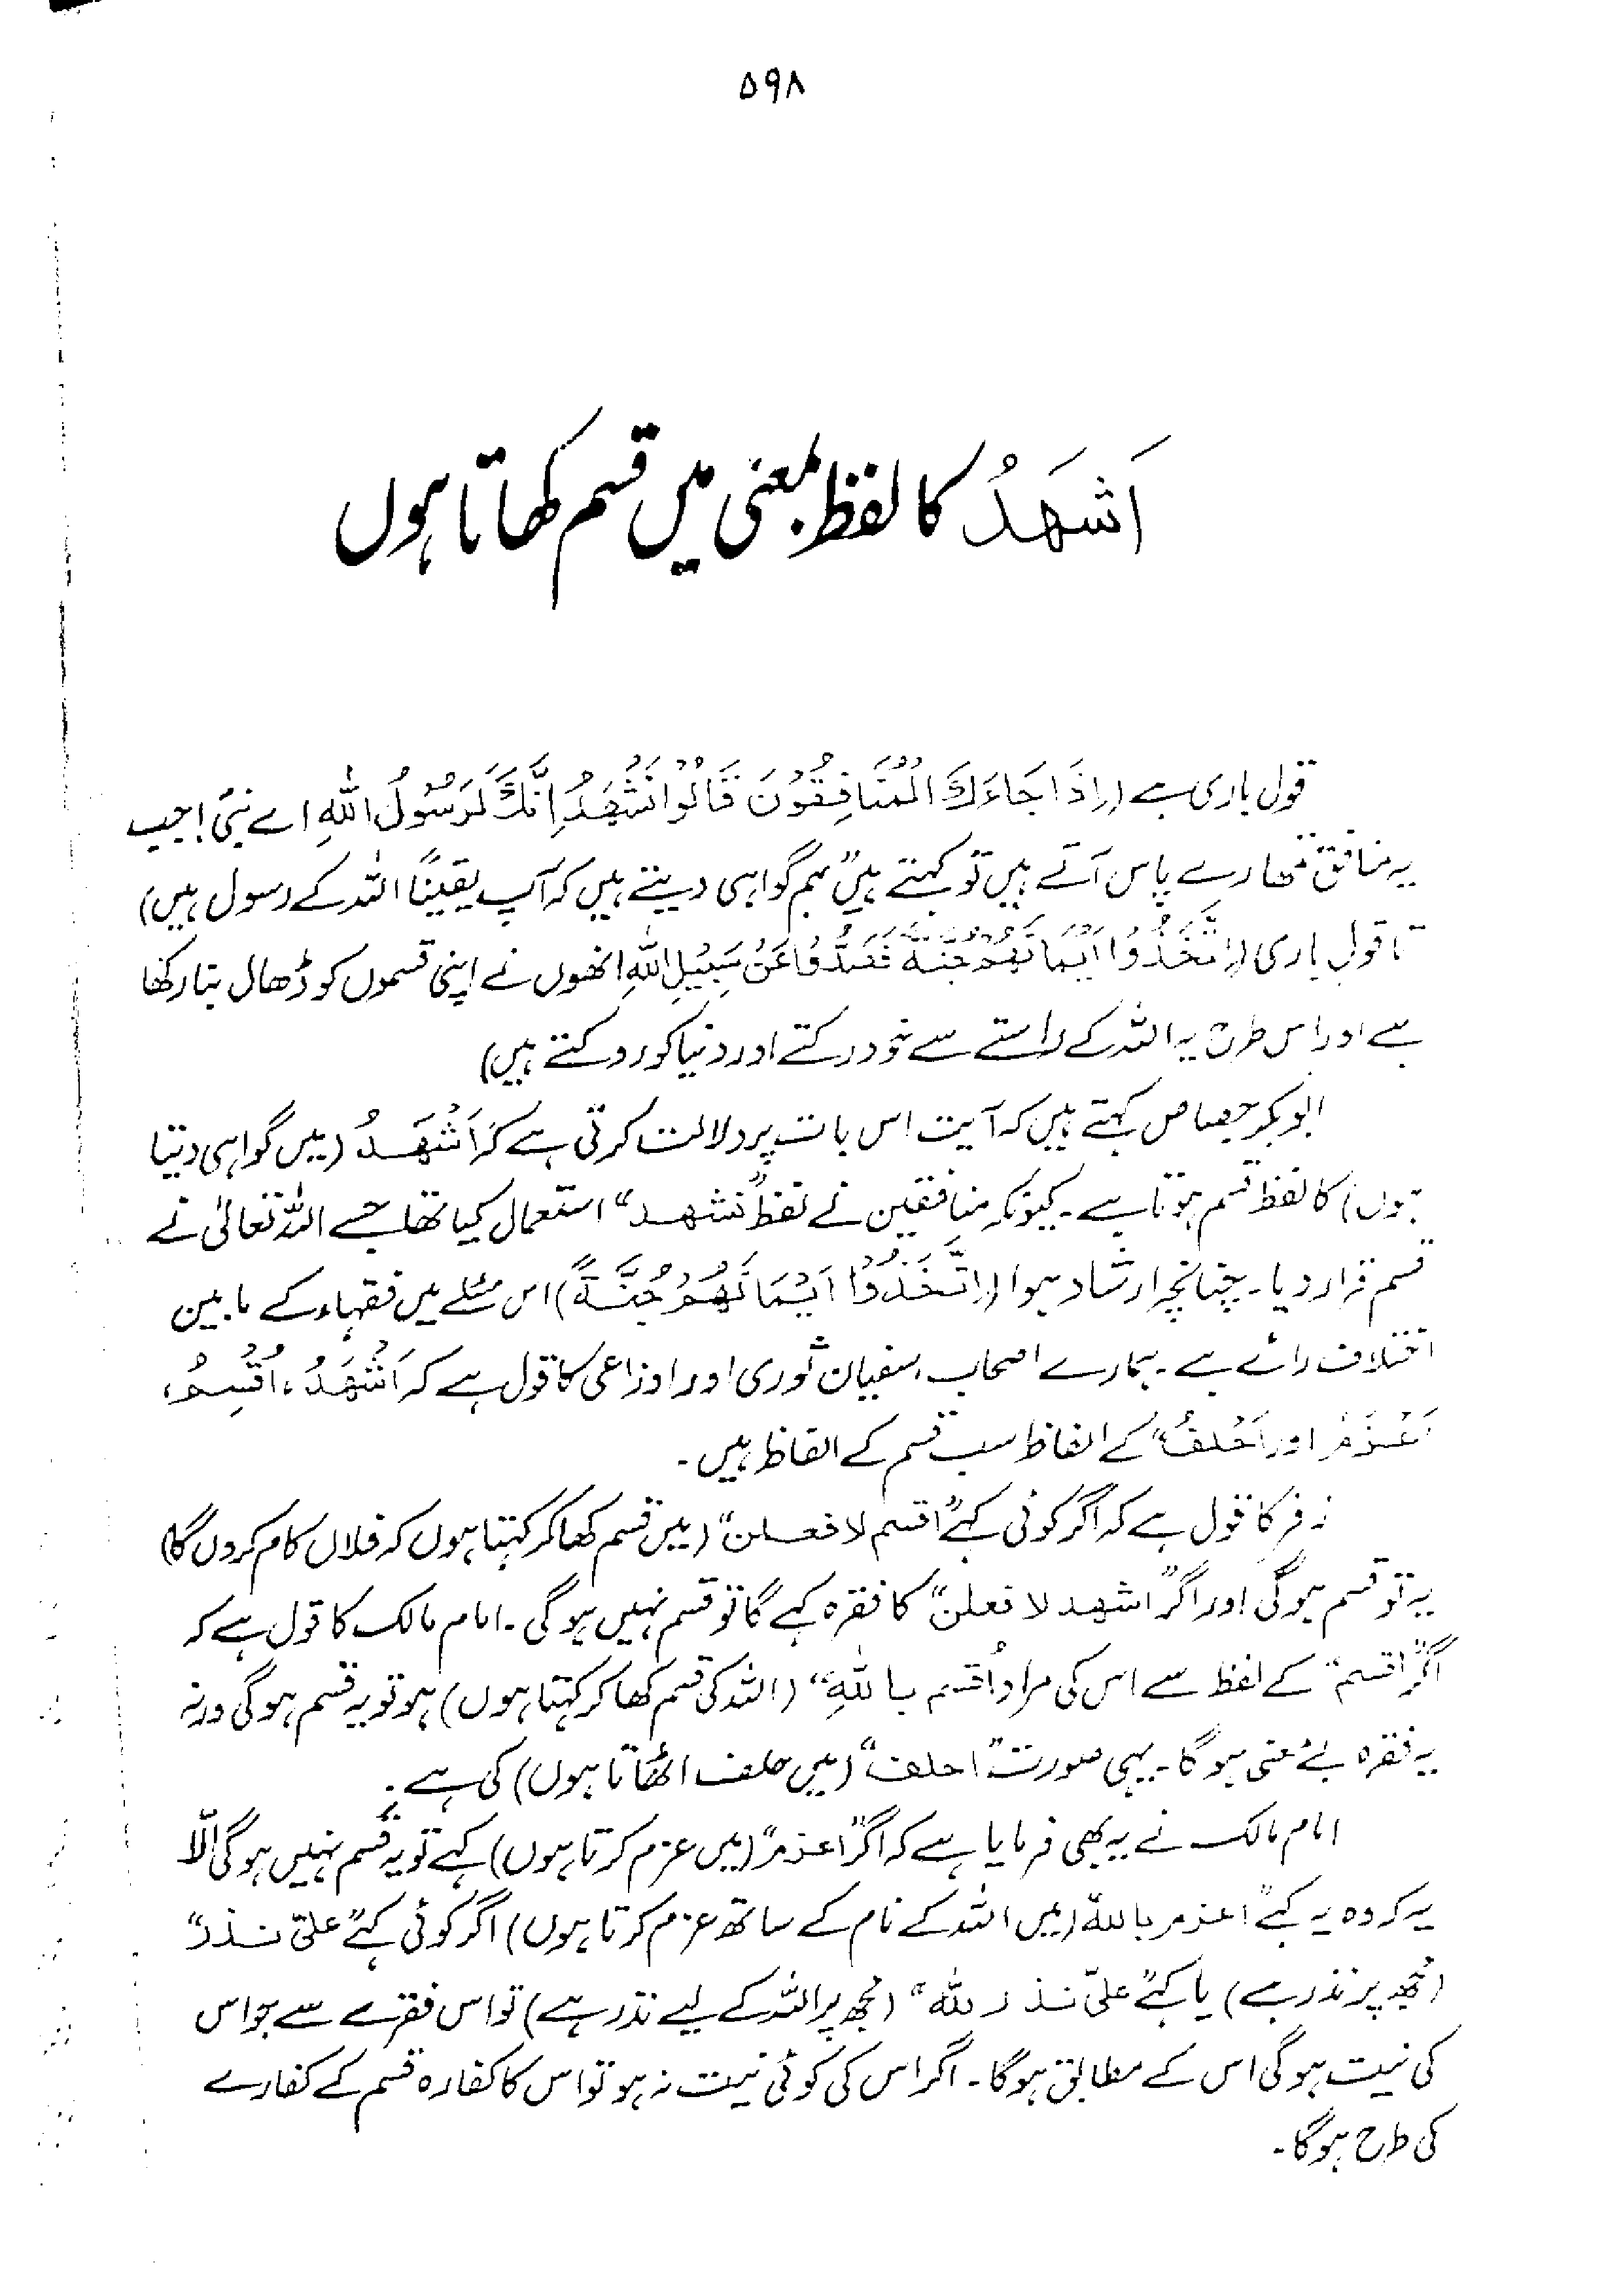 ۵۹۸
اَشْهَدُ کا لفظ بمعنی میں قسم کھاتا ہوں
قول باری ہے (اِذَا جَاءَكَ الْمُنَافِقُوْنَ قَالُوْا نَشْهَدُ اِنَّكَ لَرَسُوْلُ اللهِ اے نبیؐ! جب
یہ منافق تمھارے پاس آتے ہیں تو کہتے ہیں "ہم گواہی دیتے ہیں کہ آپ یقیناً اللہ کے رسول ہیں)
تا قول باری (اِتَّخَذُوْا اَيْمَانَهُمْ جُنَّةً فَصَدُّوْا عَنْ سَبِيْلِ اللهِ انھوں نے اپنی قسموں کو ڈھال بنا رکھا
ہے اور اس طرح یہ اللہ کے راستے سے خود رکتے اور دنیا کو روکتے ہیں)
ابوبکر جصاص کہتے ہیں کہ آیت اس بات پر دلالت کرتی ہے کہ اَشْهَدُ (میں گواہی دیتا
ہوں) کا لفظ قسم ہوتا ہے۔ کیونکہ منافقین نے لفظ "نشهد" استعمال کیا تھا جسے اللہ تعالیٰ نے
قسم قرار دیا۔ چنانچہ ارشاد ہوا (اِتَّخَذُوْا اَيْمَانَهُمْ جُنَّةً) اس مسئلے میں فقہاء کے مابین
اختلاف رائے ہے۔ ہمارے اصحاب، سفیان ثوری اور اوزاعی کا قول ہے کہ اَشْهَدُ، اُقْسِمُ،
اَعْزِمُ اور اَحْلِفُ" کے الفاظ سب قسم کے الفاظ ہیں۔
زفر کا قول ہے کہ اگر کوئی کہے "اقسم لافعلن" (میں قسم کھا کر کہتا ہوں کہ فلاں کام کروں گا)
یہ تو قسم ہوگی اور اگر "اشهد لافعلن" کا فقرہ کہے گا تو قسم نہیں ہوگی۔ امام مالک کا قول ہے کہ
اگر "اقسم" کے لفظ سے اس کی مراد "اُقسم باللهِ" (اللہ کی قسم کھا کر کہتا ہوں) ہو تو یہ قسم ہوگی ورنہ
یہ فقرہ بے معنی ہوگا۔ یہی صورت "احلف" (میں حلف اٹھاتا ہوں) کی ہے۔
امام مالک نے یہ بھی فرمایا ہے کہ اگر "اعزم" (میں عزم کرتا ہوں) کہے تو یہ قسم نہیں ہوگی الّا
یہ کہ وہ یہ کہے "اعزم بالله" (میں اللہ کے نام کے ساتھ عزم کرتا ہوں) اگر کوئی کہے "علیّ نذر"
(مجھ پر نذر ہے) یا کہے "علیّ نذر لله" (مجھ پر اللہ کے لیے نذر ہے) تو اس فقرے سے جو اس
کی نیت ہوگی اس کے مطابق ہوگا۔ اگر اس کی کوئی نیت نہ ہو تو اس کا کفارہ قسم کے کفارے
کی طرح ہوگا۔